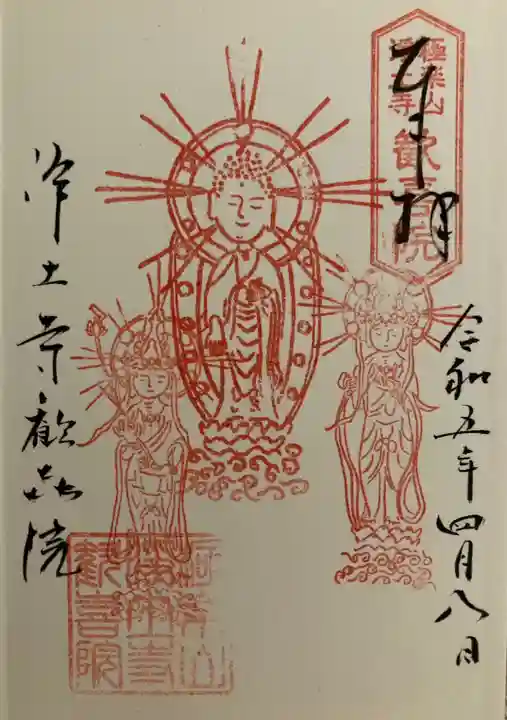 奉拝
極楽山
浄土寺
歓喜院
令和五年四月八日
浄土寺歓喜院
極楽山
浄土寺
歓喜院